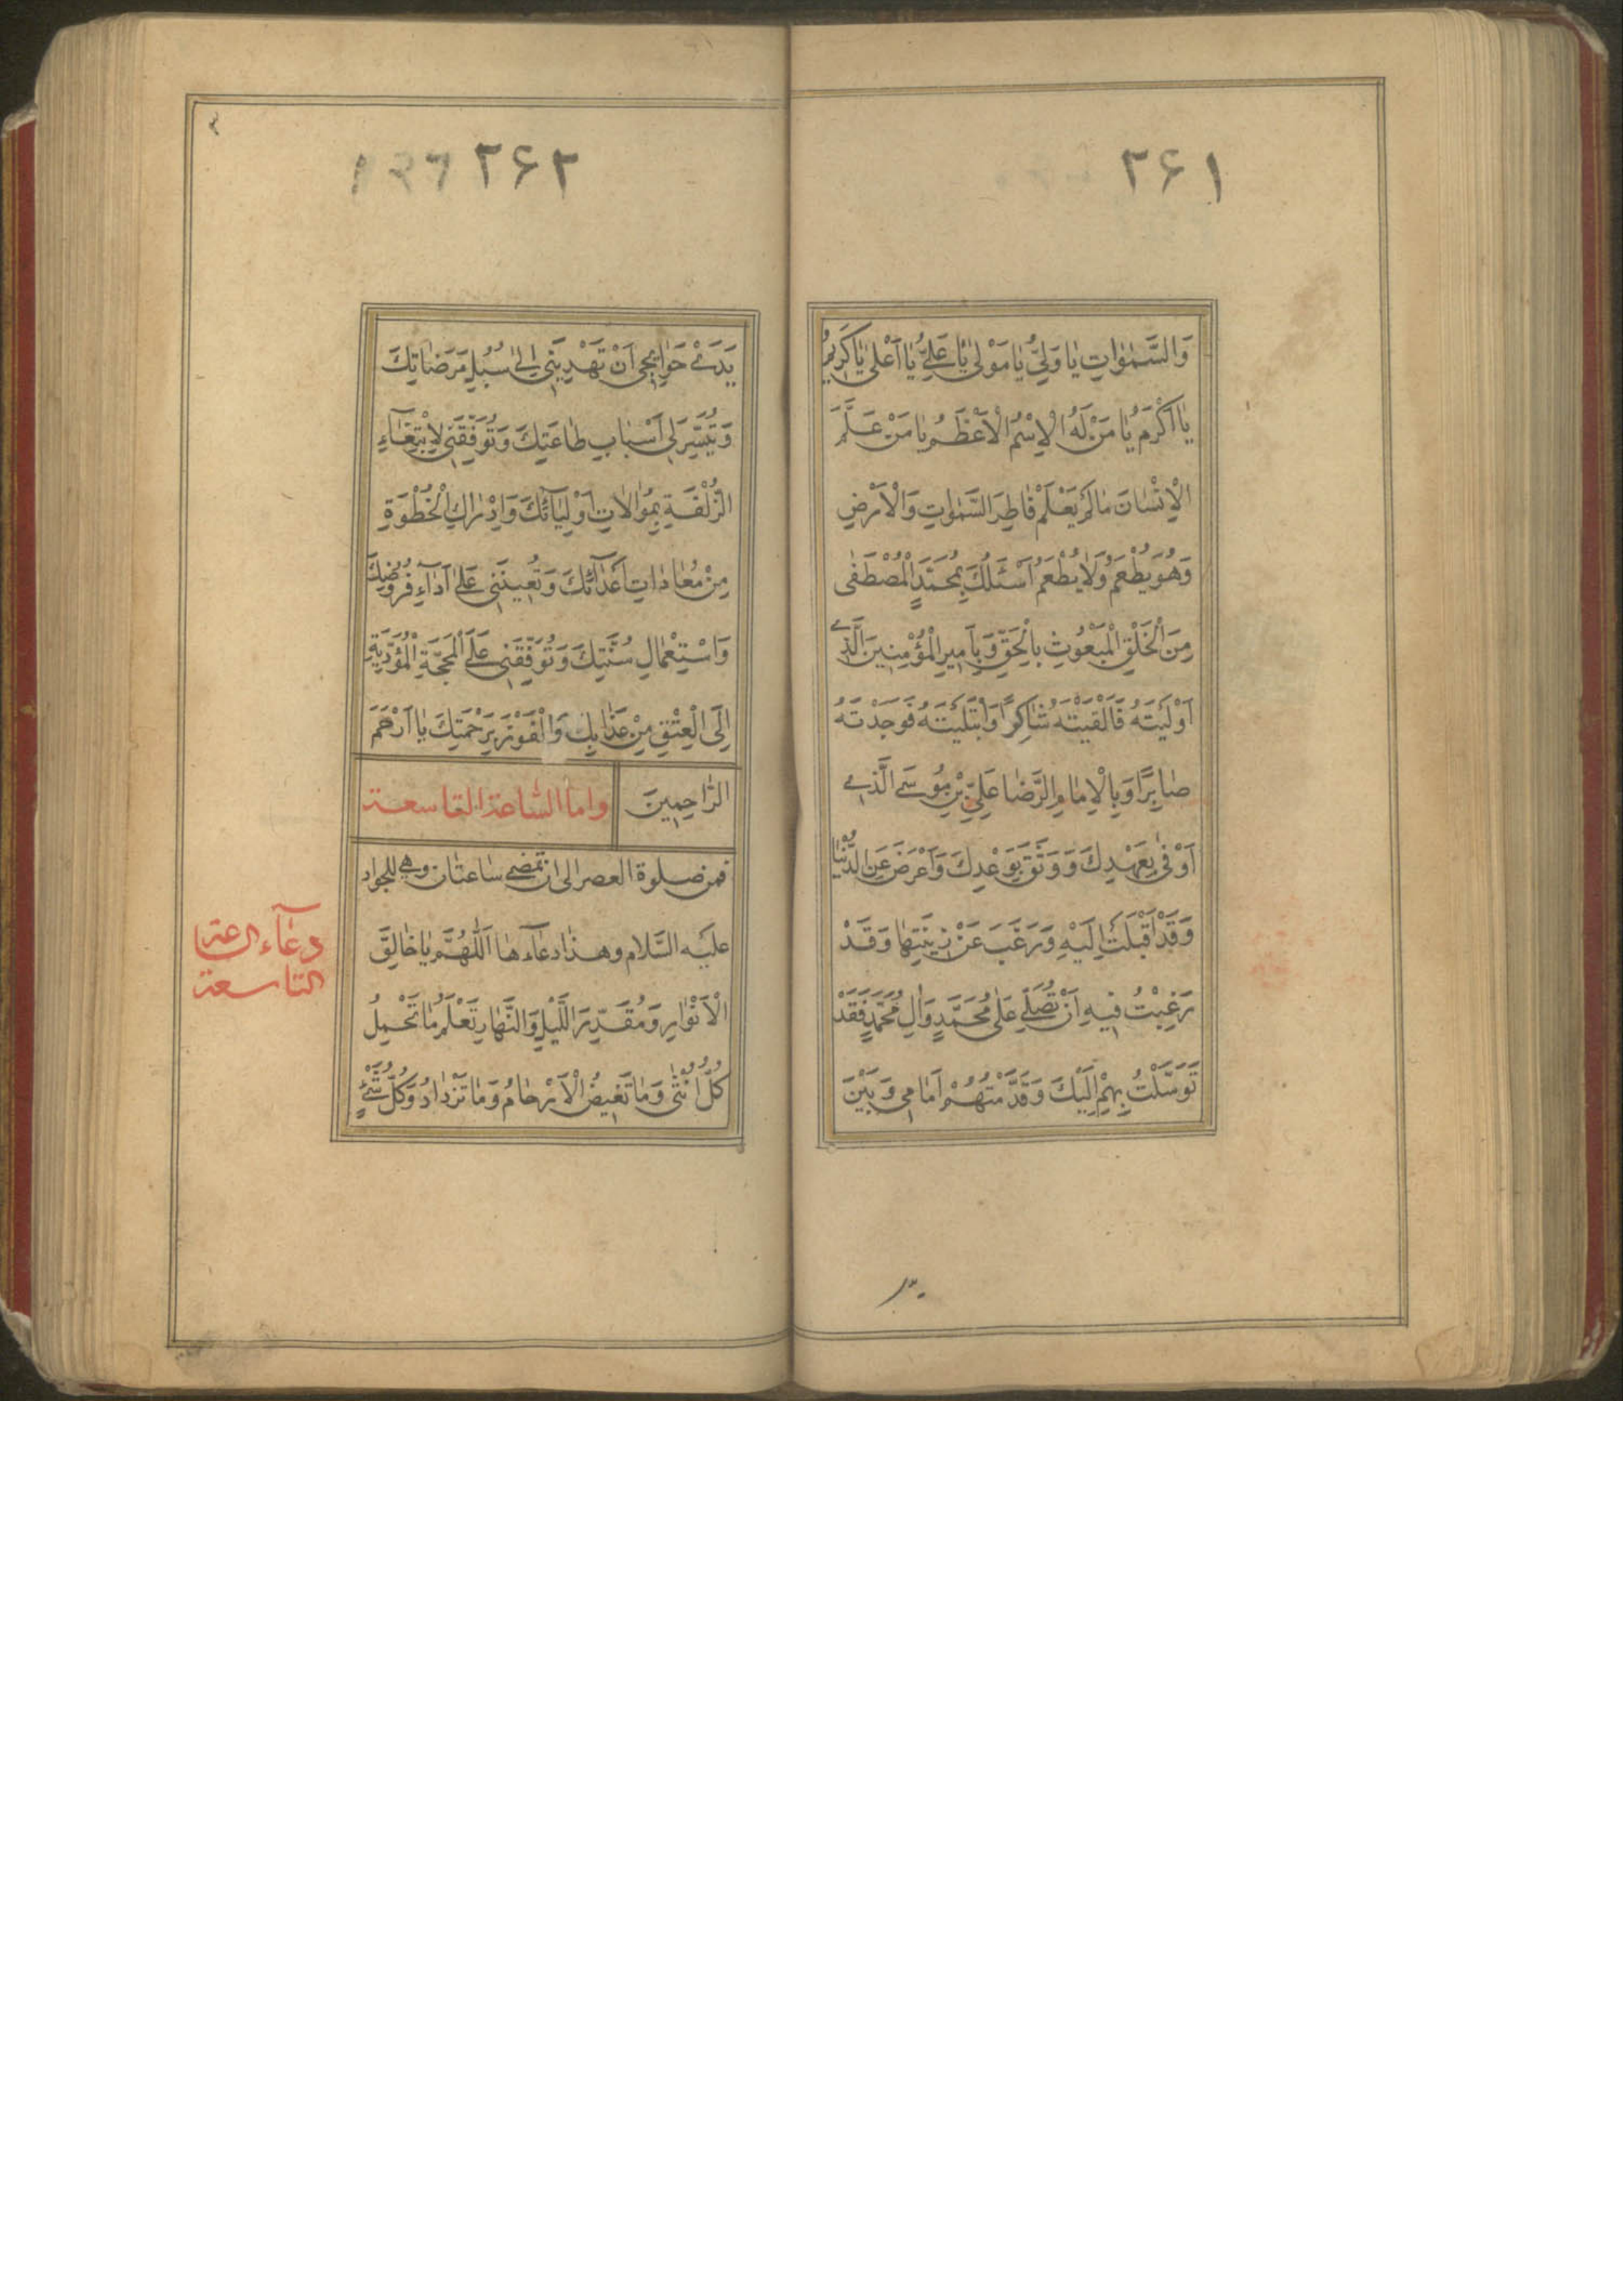 ۲۶۱
وَالسَّمٰوٰاتِ يٰا وَلِيُّ يٰا مَوْلىٰ يٰا عَلِيُّ يٰا اَعْلىٰ يٰا كَرِيمُ
يٰا اَكْرَمُ يٰا مَنْ لَهُ الْاِسْمُ الْاَعْظَمُ يٰا مَنْ عَلَّمَ
الْاِنْسٰانَ مٰا لَمْ يَعْلَمْ فٰاطِرَ السَّمٰوٰاتِ وَالْاَرْضِ
وَهُوَ يُطْعِمُ وَلٰا يُطْعَمُ اَسْئَلُكَ بِمُحَمَّدٍ الْمُصْطَفٰى
مِنَ الْخَلْقِ الْمَبْعُوثِ بِالْحَقِّ وَبِاَمِيرِ الْمُؤْمِنِينَ الَّذِي
اَوْلَيْتَهُ فَاَلْقَيْتَهُ شٰاكِرًا وَابْتَلَيْتَهُ فَوَجَدْتَهُ
صٰابِرًا وَبِالْاِمٰامِ الرِّضٰا عَلِيِّ بْنِ مُوسَى الَّذِي
اَوْفىٰ بِعَهْدِكَ وَوَثَقَ بِوَعْدِكَ وَاَعْرَضَ عَنِ الدُّنْيٰا
وَقَدْ اَقْبَلَتْ اِلَيْهِ وَرَغَّبَ عَنْ زِينَتِهٰا وَقَدْ
رَغِبْتُ فِيهِ اَنْ تُصَلِّيَ عَلىٰ مُحَمَّدٍ وَاٰلِ مُحَمَّدٍ فَقَدْ
تَوَسَّلْتُ بِهِمْ اِلَيْكَ وَقَدَّمْتُهُمْ اَمٰامِي وَبَيْنَ
۲۶۲
يَدَيْ حَوٰائِجِي اَنْ تَهْدِيَنِي اِلىٰ سُبُلِ مَرَضٰاتِكَ
وَتُيَسِّرَ لِي اَسْبٰابَ طٰاعَتِكَ وَتُوَفِّقَنِي لِابْتِغٰآءِ
الزُّلْفَةِ بِمُوٰالٰاتِ اَوْلِيٰآئِكَ وَاِدْرٰاكِ الْخُطْوَةِ
مِنْ مُعٰادٰاتِ اَعْدٰآئِكَ وَتُعِينَنِي عَلىٰ اَدٰآءِ فُرُوضِكَ
وَاسْتِعْمٰالِ سُنَّتِكَ وَتُوَفِّقَنِي عَلَى الْمَحَجَّةِ الْمُؤَدِّيَةِ
اِلَى الْعِتْقِ مِنْ عَذٰابِكَ وَالْفَوْزِ بِرَحْمَتِكَ يٰا اَرْحَمَ
الرّٰاحِمِينَ واما الساعة التاسعة
فمن صلوة العصر الى ان تمضي ساعتان وهي للجواد
عليه السّلام وهذا دعآءها اَللّٰهُمَّ يٰا خٰالِقَ
الْاَنْوٰارِ وَمُقَدِّرَ اللَّيْلِ وَالنَّهٰارِ تَعْلَمُ مٰا تَحْمِلُ
كُلُّ اُنْثىٰ وَمٰا تَغِيضُ الْاَرْحٰامُ وَمٰا تَزْدٰادُ وَكُلُّ شَيْءٍ
دعآء الساعة
التاسعة